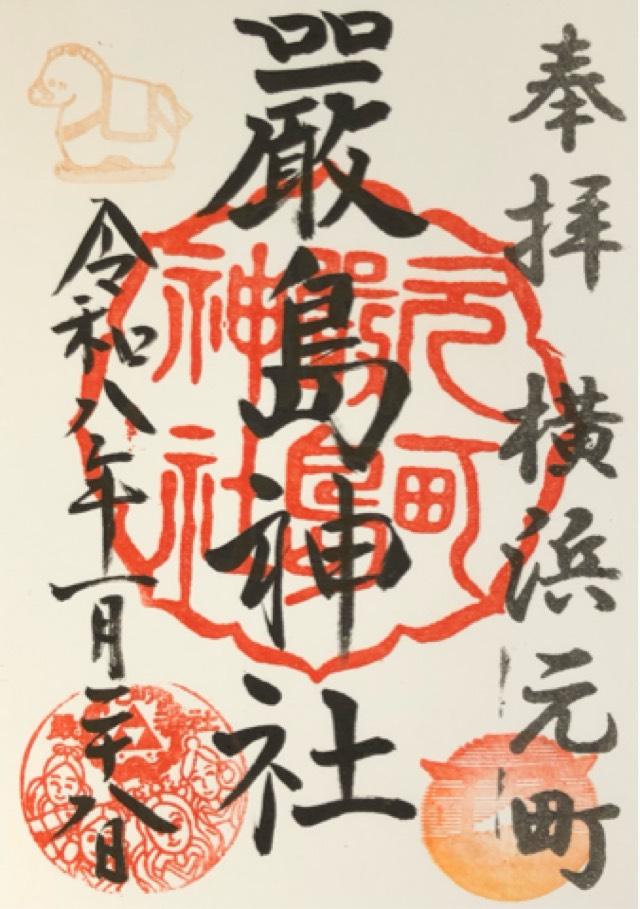 奉拝 横浜元町
嚴島神社
令和八年一月二十八日
元町
嚴島
神社